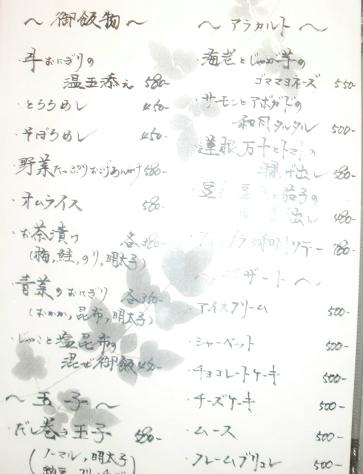 ～御飯物～
おにぎりの
温玉添え 580-
・とろろめし 450-
・そぼろめし 450-
野菜たっぷりおこげあんかけ 580-
・オムライス 580-
・お茶漬け 各380-
(梅,鮭,のり,明太子)
青菜のおにぎり 各350-
(おかか,昆布,明太子)
・じゃこと塩昆布の
混ぜ御飯
～玉子～
・だし巻き玉子 580-
(ノーマル,明太子)
～アラカルト～
・海老とじゃが芋の
ゴママヨネーズ 550
・サーモンとアボガドの
和風タルタル 500-
・蓮根万十とトマトの
揚げ出し 480-
茄子の
出し 480-
780-
～デザート～
・アイスクリーム 500-
・シャーベット 500-
・チョコレートケーキ 500-
・チーズケーキ 500-
・ムース 500-
・クレームブリュレ 500-